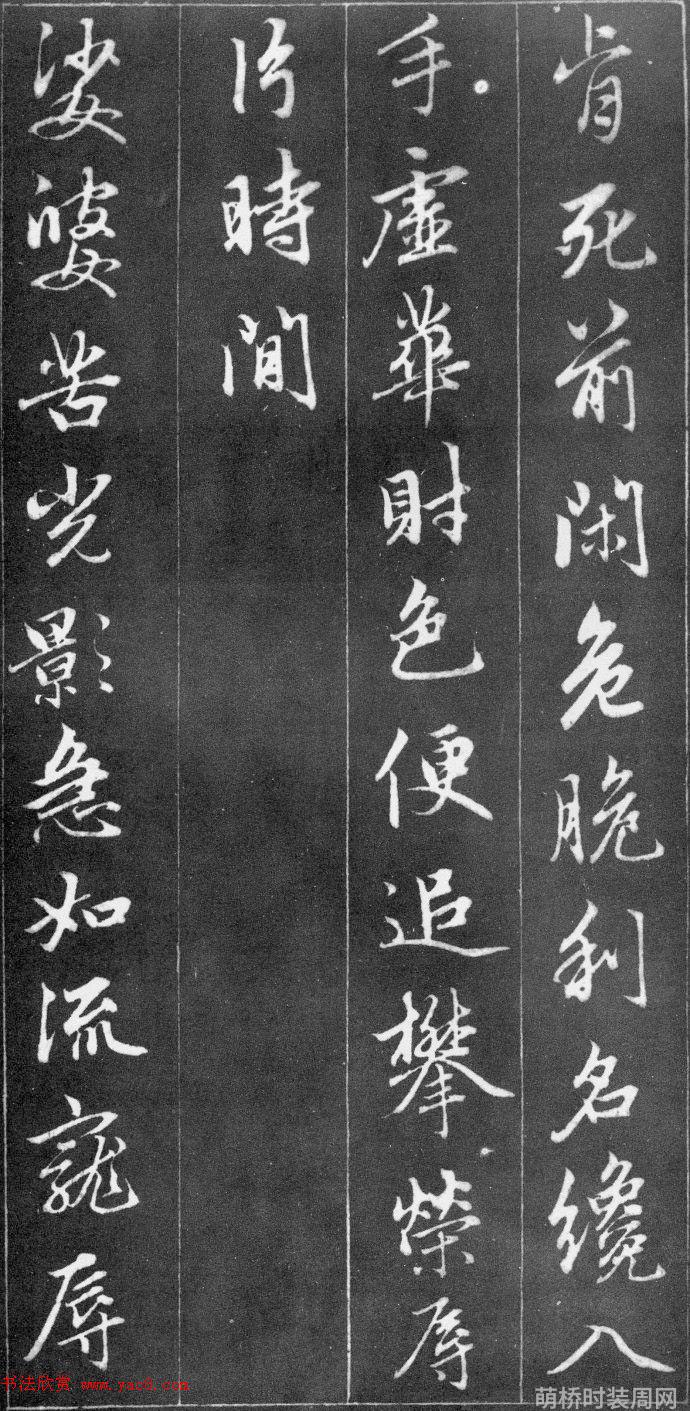 肯死前閑危脆利名纔入
手虛華財色便追攀榮辱
片時間
娑婆苦光影急如流寵辱
书法欣赏 www.yac8.com
萌桥时装周网